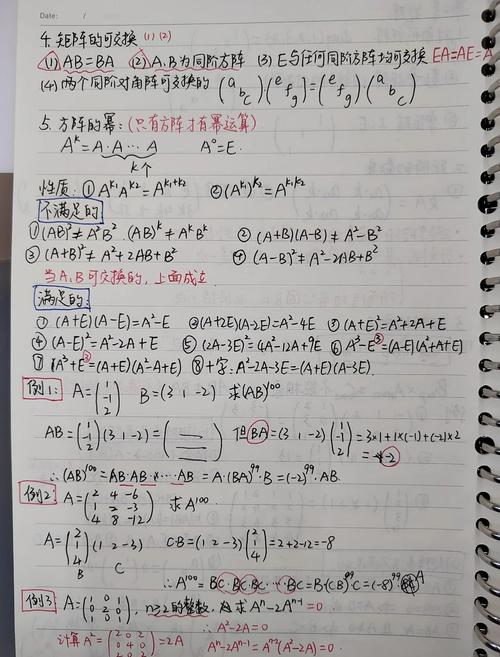 Date: /
4.矩阵的可交换 (1)(2)
(1) AB=BA (2) A,B为同阶方阵 (3) E与任何同阶方阵均可交换 EA=AE=A
(4) 两个同阶对角阵可交换的 (a b c)·(e f g)=(e f g)·(a b c)
5. 方阵的幂: (只有方阵才有幂运算)
A^k=A·A···A A^0=E.
k个
性质: ① A^k1 A^k2=A^k1+k2 ② (A^k1)^k2=A^k1k2
不满足的
① (AB)²≠A²B². (AB)^k≠A^kB^k ② (A+B)(A-B)≠A²-B²
③ (A+B)²≠A²+2AB+B² ④ (A-B)²≠A²-2AB+B²
当A,B可交换的,上面成立
满足的:
① (A+E)(A-E)=A²-E ② (A+2E)(A-2E)=A²-4E ③ (A+E)²=A²+2A+E
④ (A-E)²=A²-2A+E ⑤ (2A-3E)²=4A²-12A+9E ⑥ A³-E³=(A-E)(A²+A+E)
⑦ A³+E³=(A+E)(A²-A+E) ⑧ 十字: A²-2A-3E=(A+E)(A-3E).
例1: A=(1 -1 2) B=(3 1 -2) 求(AB)^100
AB=(1 -1 2)(3 1 -2)=( ) 但BA=(3 1 -2)(1 -1 2)=3×1+1×(-1)+(-2)×2
=-2
∴(AB)^100=AB·AB·×···AB=A·(BA)^99·B=(-2)^99·AB.
例2: A=(2 4 -6 1 2 -3 4 8 -12) 求A^100
A=(2 1 4)(1 2 -3) CB=(1 2 -3)(2 1 4)=2+2-12=-8
B C
∴A^100=BC·BC·BC···BC=B·(CB)^99·C=(-8)^99 A
例3 A=(1 0 1 0 2 0 1 0 1), n≥2的整数, 求A^n-2A^n-1=0
∴A²-2A=0
计算A²=(2 0 2 0 4 0 2 0 2)=2A A^n-2A^n-1=A^n-2(A²-2A)=0.